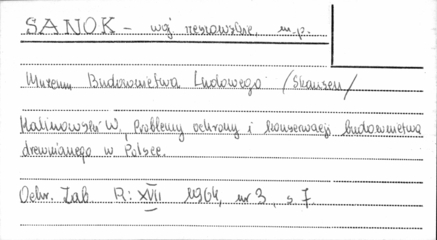 SANOK - woj. rzeszowskie, m.p.
Muzeum Budownictwa Ludowego /Skansen/
Malinowski W. Problemy ochrony i konserwacji budownictwa
drewnianego w Polsce.
Ochr. Zab. R: XVII 1964, nr 3, s 7